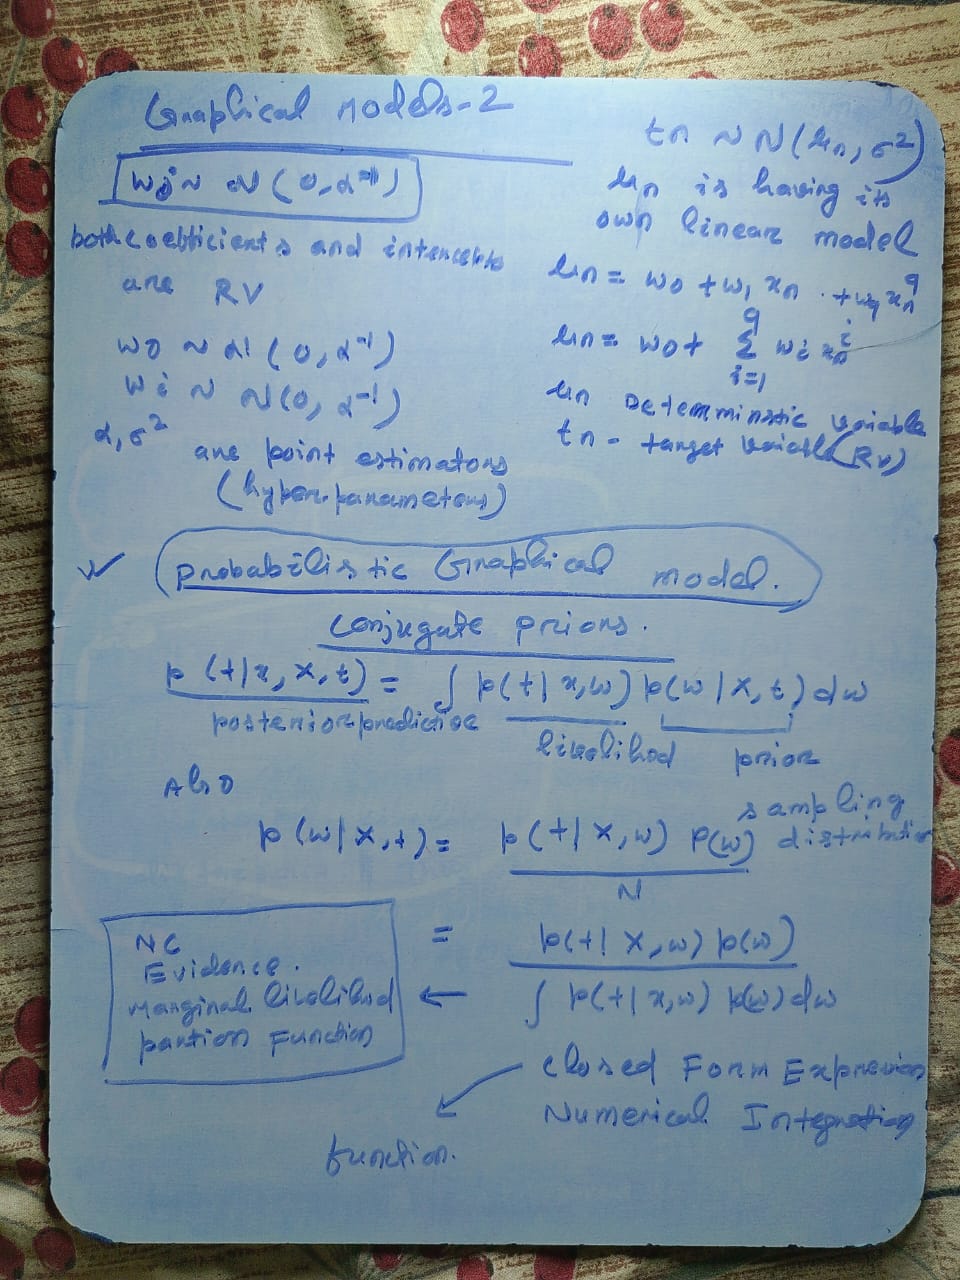 Graphical Models-2
wj ~ N(0, α⁻¹)
both coefficients and intercepts
are RV
w0 ~ N(0, α⁻¹)
wi ~ N(0, α⁻¹)
α, σ²
are point estimators
(hyper-parameters)
tn ~ N(μn, σ²)
μn is having its
own linear model
μn = w0 + w1 xn . + wq xn^q
μn = w0 + Σ_{i=1}^{q} wi xn^i
μn Deterministic variable
tn - target variable (RV)
✓ Probabilistic Graphical model.
conjugate priors.
p(t|x, X, t) = ∫ p(t|x,w) p(w|X,t) dw
posterior predictive
likelihod prior
Also
sampling
distribution
p(w|X,t) = p(t|X,w) P(w)
N
= p(t|X,w) p(w)
∫ p(t|x,w) p(w) dw
NC
Evidence.
Marginal likelihod
partion Function
←
closed Form Expression
Numerical Integration
function.